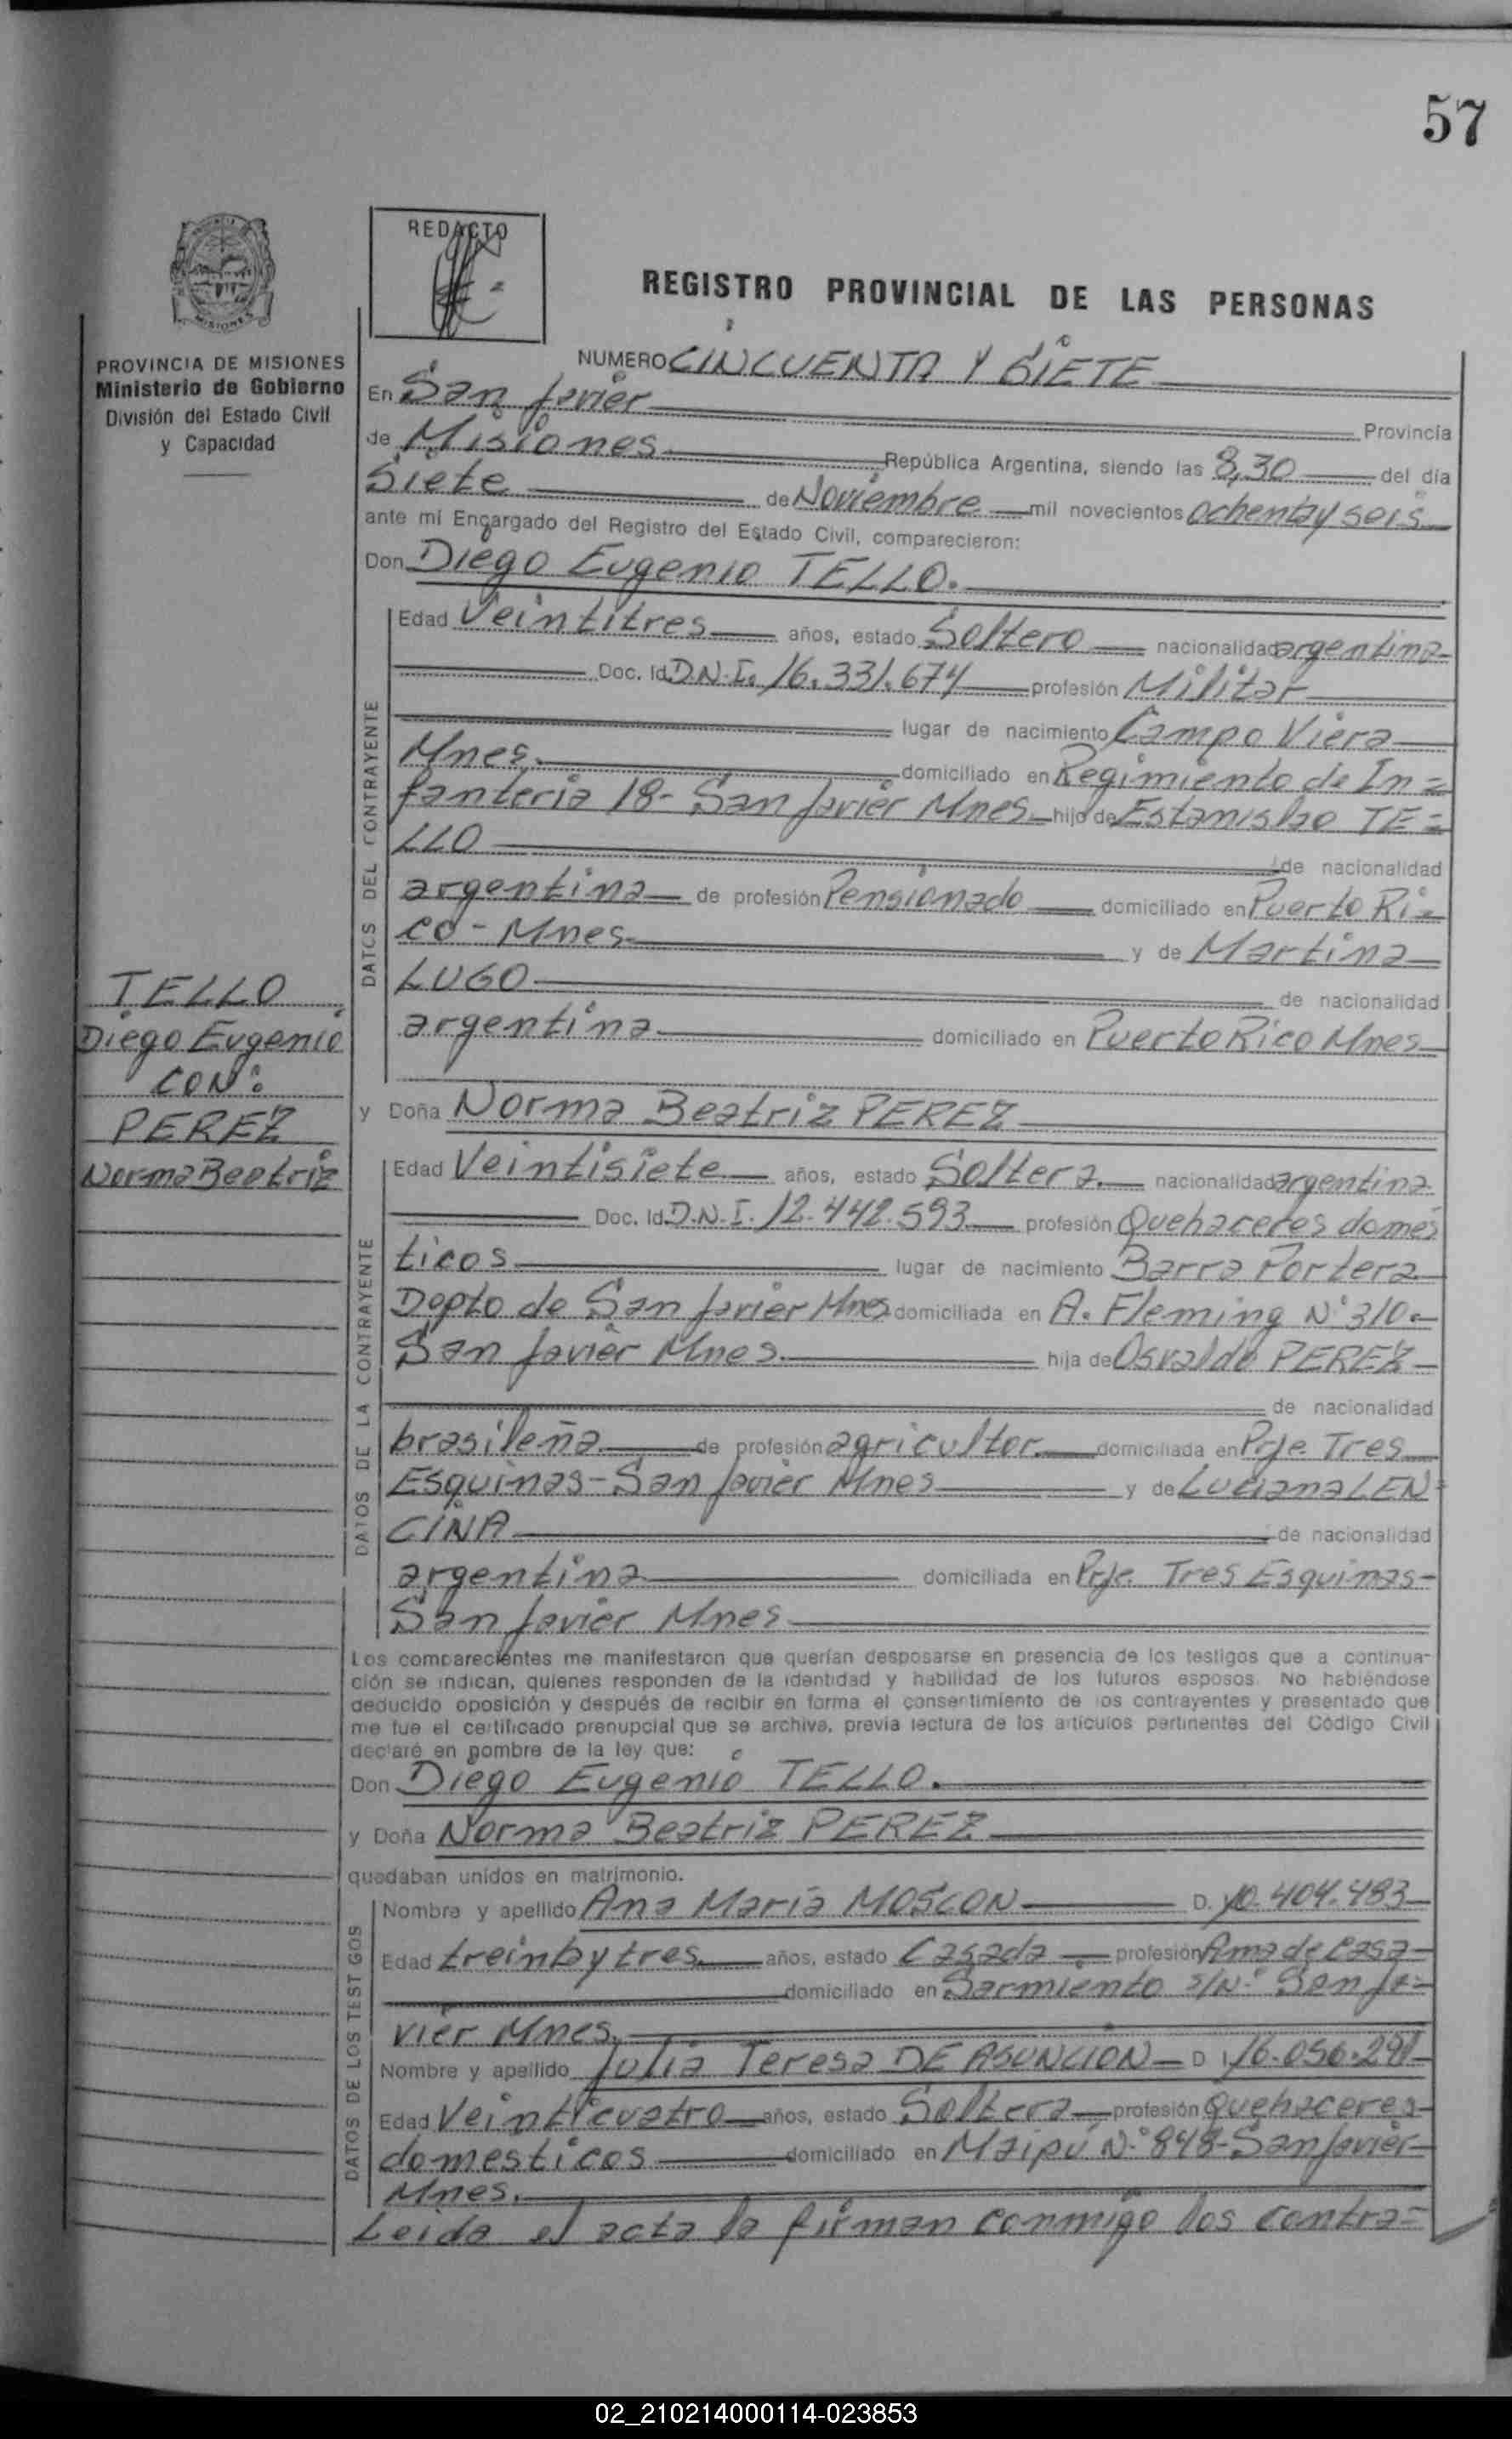 57
REDACTO
REGISTRO PROVINCIAL DE LAS PERSONAS
MISIONES
PROVINCIA DE MISIONES
Ministerio de Gobierno
División del Estado Civil
y Capacidad
NUMERO CINCUENTA Y SIETE
En San Javier Provincia
de Misiones República Argentina, siendo las 8,30 del día
Siete de Noviembre mil novecientos ochenta y seis
ante mi Encargado del Registro del Estado Civil, comparecieron:
Don Diego Eugenio TELLO.
DATOS DEL CONTRAYENTE
Edad Veintitres años, estado Soltero nacionalidad argentina
Doc. Id. D.N.I. 16.331.674 profesión Militar
lugar de nacimiento Campo Viera
Mnes. domiciliado en Regimiento de In=
fanteria 18- San Javier Mnes. hijo de Estanislao TE=
LLO de nacionalidad
argentina de profesión Pensionado domiciliado en Puerto Ri=
co - Mnes. y de Martina
LUGO de nacionalidad
argentina domiciliado en Puerto Rico Mnes
TELLO
Diego Eugenio
CON:
PEREZ
Norma Beatriz
y Doña Norma Beatriz PEREZ
DATOS DE LA CONTRAYENTE
Edad Veintisiete años, estado Soltera. nacionalidad argentina
Doc. Id. D.N.I. 12.442.593 profesión Quehaceres domes
ticos lugar de nacimiento Barra Portera
Dopto de San Javier Mnes domiciliada en A. Fleming N° 310-
San Javier Mnes. hija de Osvaldo PEREZ
de nacionalidad
brasileña de profesión agricultor. domiciliada en Prje. Tres
Esquinas-San Javier Mnes y de Luciana LEN=
CINA de nacionalidad
argentina domiciliada en Prje. Tres Esquinas-
San Javier Mnes
Los comparecientes me manifestaron que querían desposarse en presencia de los testigos que a continua-
ción se indican, quienes responden de la identidad y habilidad de los futuros esposos. No habiéndose
deducido oposición y después de recibir en forma el consentimiento de los contrayentes y presentado que
me fue el certificado prenupcial que se archiva, previa lectura de los artículos pertinentes del Código Civil
declaré en nombre de la ley que:
Don Diego Eugenio TELLO.
y Doña Norma Beatriz PEREZ
quedaban unidos en matrimonio.
DATOS DE LOS TESTIGOS
Nombre y apellido Ana Maria MOSCON D. 10.404.483
Edad treinta y tres. años, estado Casada profesión Ama de casa
domiciliado en Sarmiento s/N.° San Ja=
vier Mnes.
Nombre y apellido Julia Teresa DE ASUNCION D I 16.056.291
Edad Veinticuatro años, estado Soltera profesión Quehaceres
domesticos domiciliado en Maipú N.° 848-San Javier
Mnes.
Leida el acta la firman conmigo los contra=
02_210214000114-023853